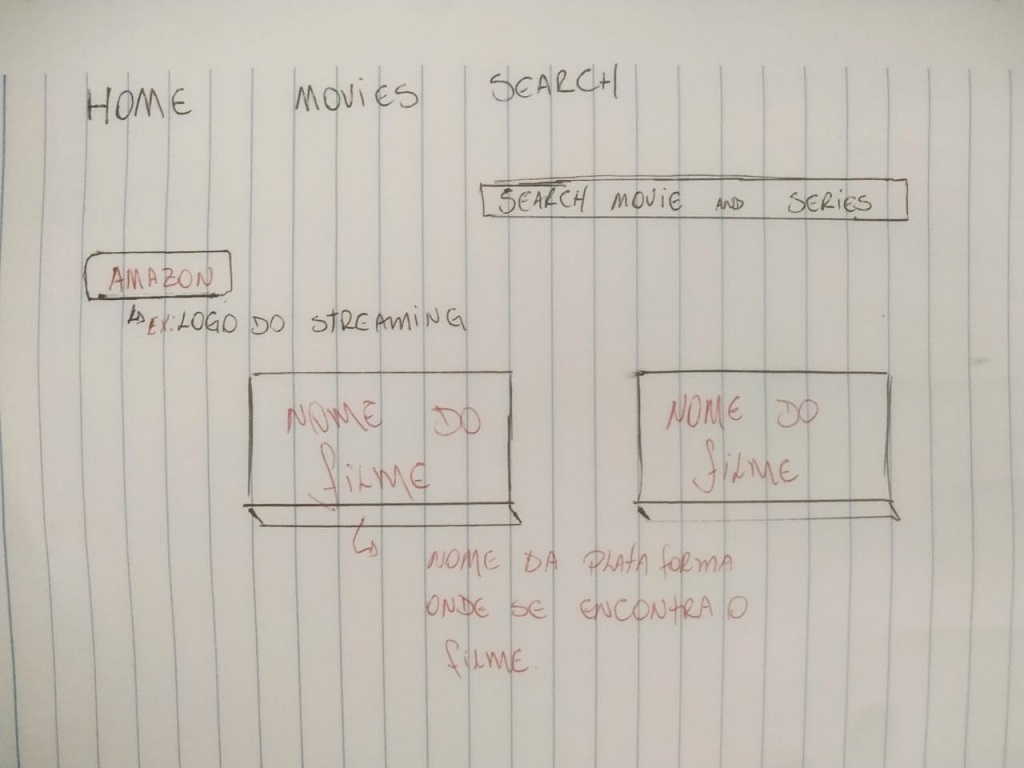 HOME MOVIES SEARCH
SEARCH MOVIE AND SERIES
AMAZON
EX: LOGO DO STREAMING
NOME DO
FILME
NOME DO
FILME
NOME DA PLATAFORMA
ONDE SE ENCONTRA O
FILME.